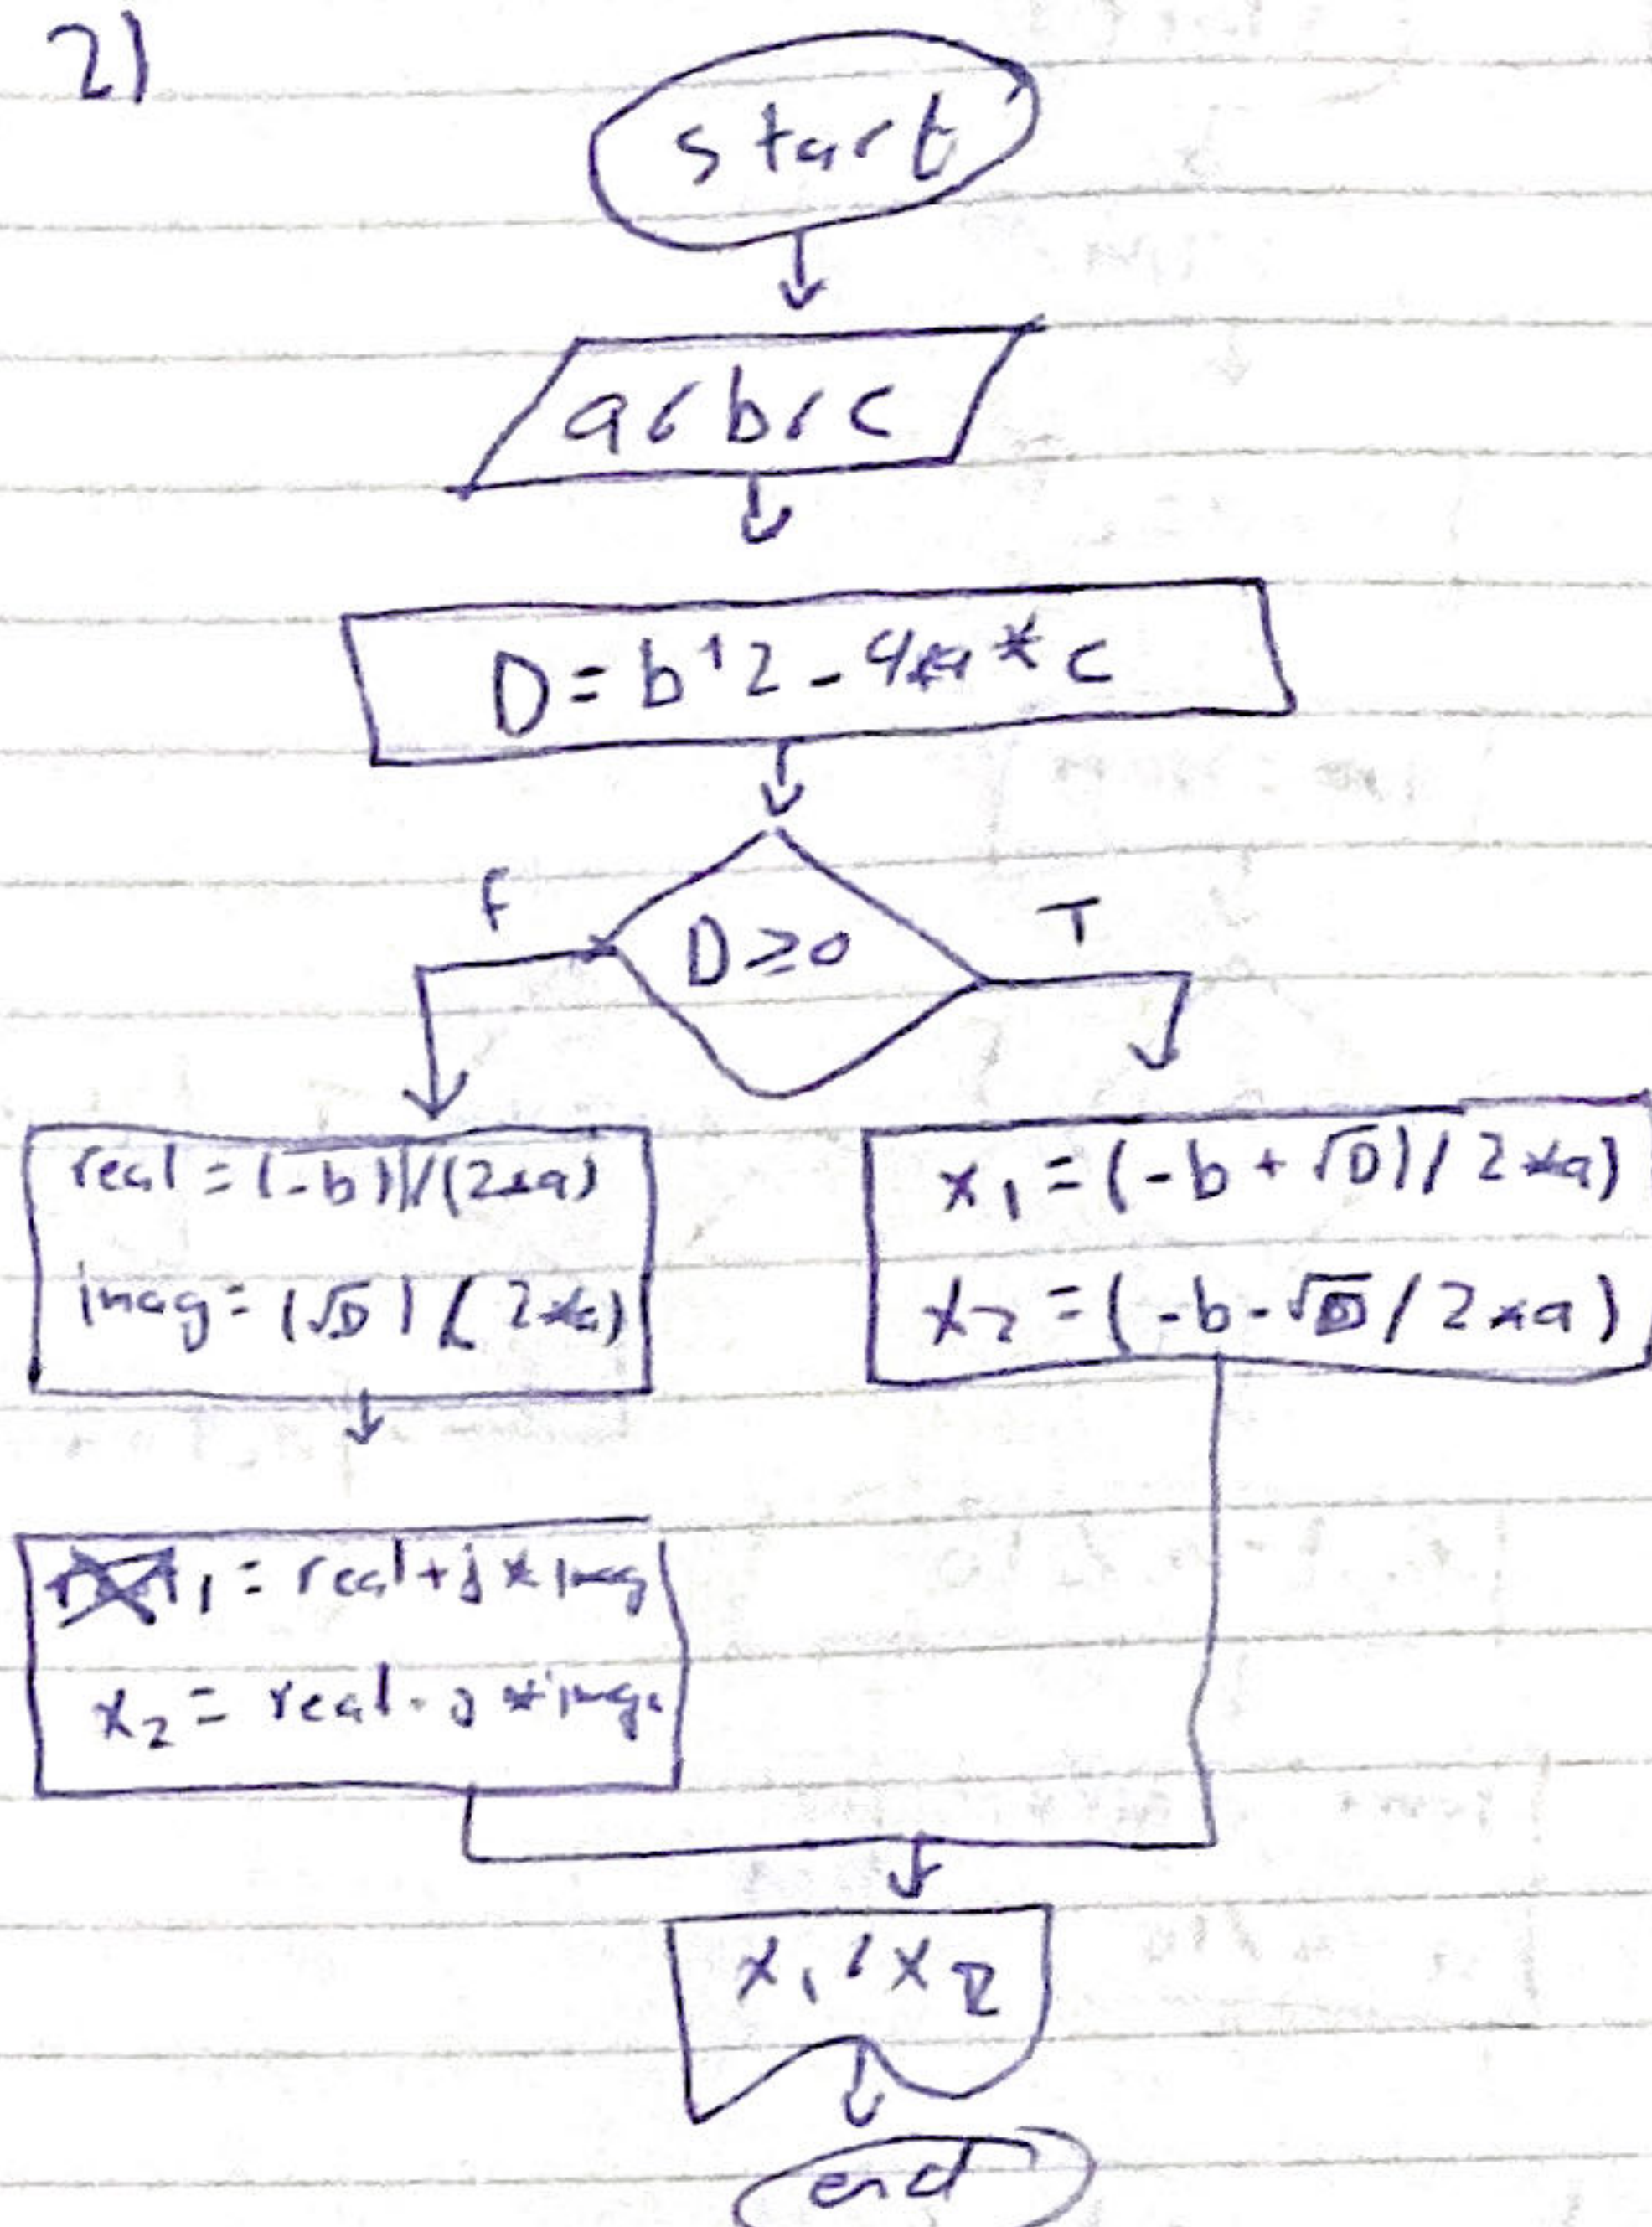 2)
start
a، b، c
D = b↑2 - 4*a * c
F
D ≥ 0
T
real = (-b)/(2*a)
imag = (√D) / (2*a)
x1 = (-b + √D) / 2*a)
x2 = (-b - √D / 2*a)
1 = real + j * imag
x2 = real - j * imag.
x1، x2
end